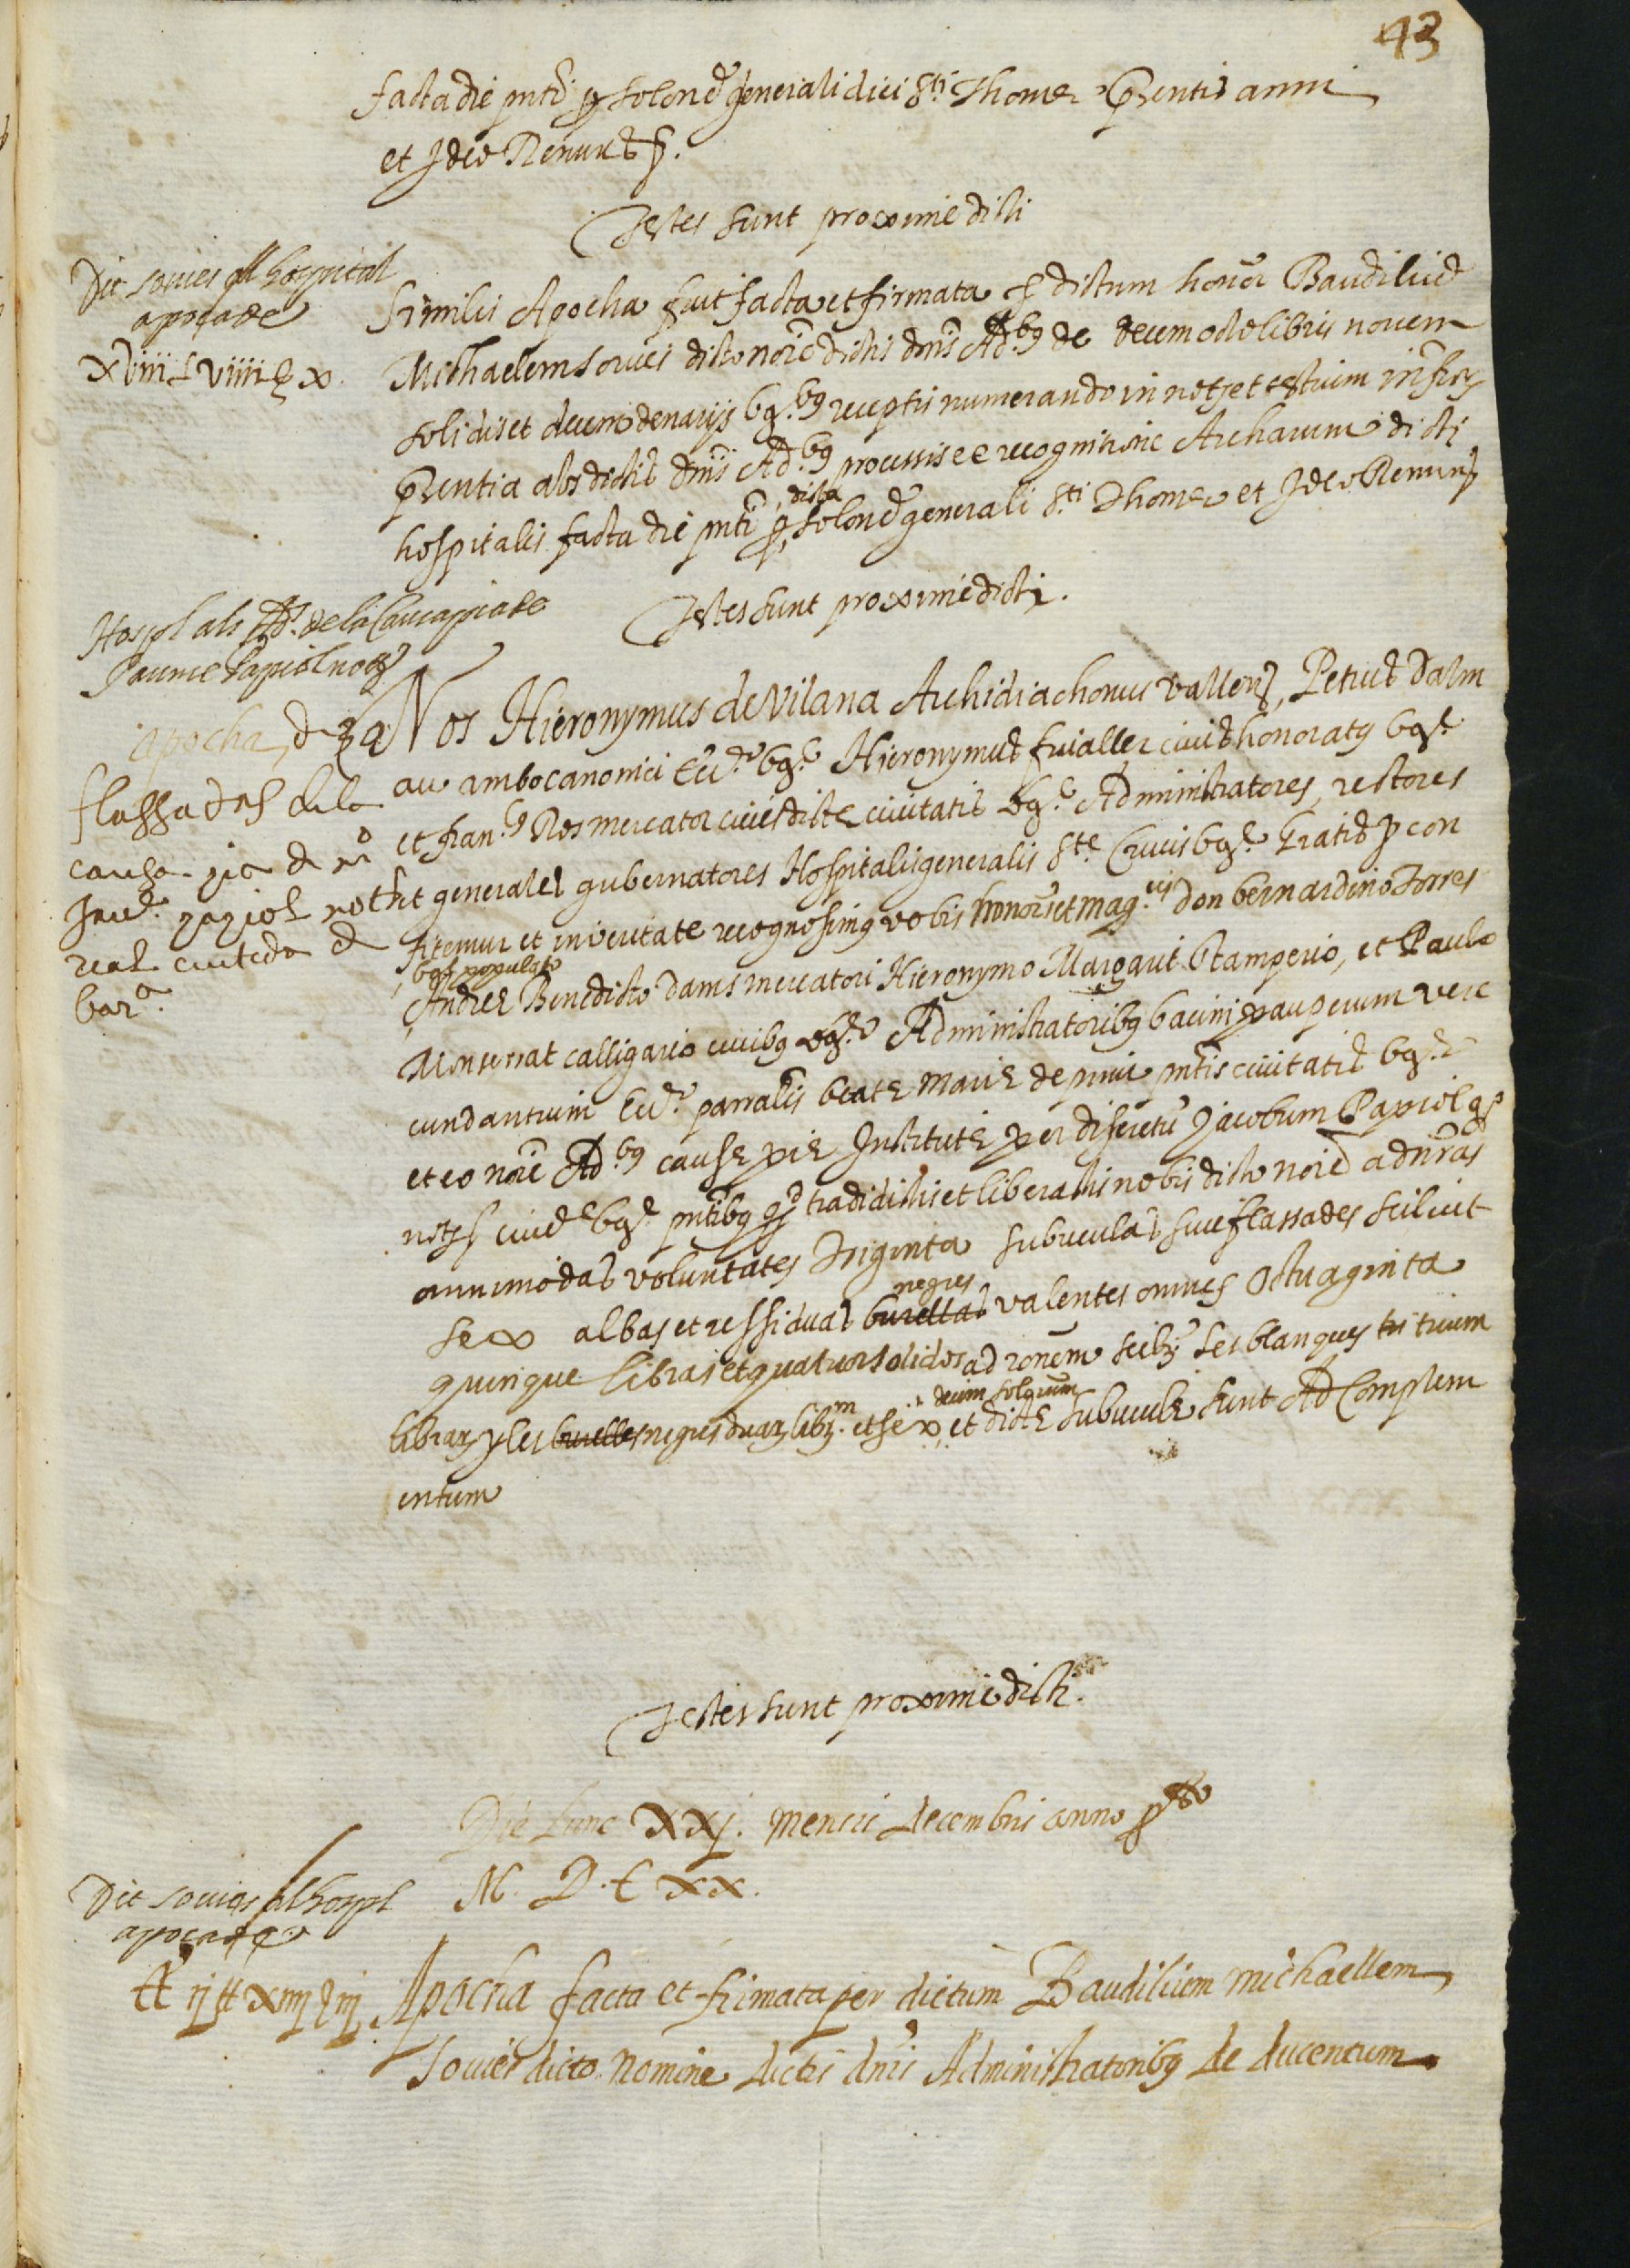 43
facta die pnti p solone generali dici Sti Thome pzentis anni
et Ideo Renunt p.
Testes sunt proxime dicti
Dit sovies al hospital
apoca de
xviiii L viiii § x.
Similis Apocha fuit facta et firmata p dictum honor Baudiliud
Michaelem sovies dicto noie dictis dnis Ad.bg de decem octo libris novem
solidis et decem denariis bg.bg receptis numerando in notz et testium infrs
pzentia abs dictis dnis Ad.bg processisee recognitione Archarum dicti
hospitalis facta die pnti p dicta solone generali Sti Thome et Ideo Renunt
Testes sunt proxime dicti.
Hospl als Ads. de la Causa pia de
Jaume Papiol noty
apocha, de 30
flassades de la
causa pia de mo
Jaue. papiol not
real ciutada de
bara.
Nos Hieronymus de Vilana Archidiachonus vallens, Petrus Dalm
au ambo canonici Ecce bge Hieronymus fivaller civis honoratg bge
et fran.s Ros mercator cives dicte civitatis bge Administratores, rectores
et generales gubernatores Hospitalis generalis Ste Crucis bge Gratis p con
fitemur et in veritate recognoscimg vobis honor et mag.cis don bernardino Torres
bge populato
Andree Benedicto dams mercatori Hieronymo Margarit stamperio, et Paulo
Monserrat calligario civibg bge Administratoribg bacini pauperum vere
cundantium Ecce parralis beate Marie de pinu pntis civitatis bge
et eo noie Ad.bg cause pie Institute per discretu Jacobum Papiol qo
notz cive bge pntibg qd tradidistis et liberastis nobis dicto noie ad nras
omnimodas voluntates Triginta subuculas sive flassades scilicet
negres
sex albas et ressiduas burellas valentes omnes Octuaginta
quinque libras et quatuor solidos ad ronem scilz les blanques tri trium
decim solorum
librar y les burelles negres duarz librm et sex, et dicte subucule sunt Ad Complem
entum
Testes sunt proxime dicti.
Die Lune XXj. mensis decembris anno pdto
M. D. C xx.
Dit sovies al hospl
apoca de
CC ij ℔ xiiij § iij
Apocha facta et firmata per dictum Baudilium michaellem
sovies dicto nomine dictis dnis Administratoribg de ducentum